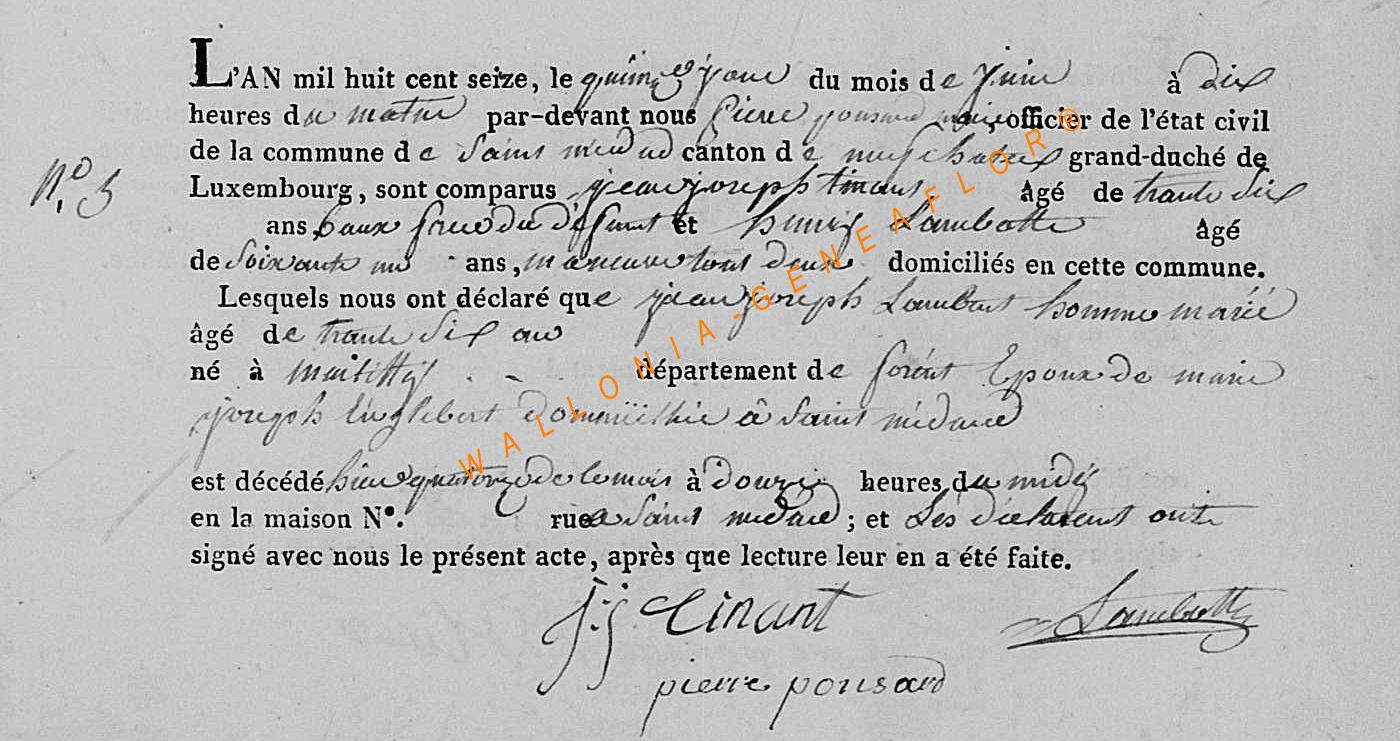 L'AN mil huit cent seize, le quinze jour du mois de Juin à dix
heures du matin par-devant nous Pierre ponsard maire, officier de l'état civil
de la commune de Saint médard canton de neufchateau grand-duché de
N.º 5
Luxembourg, sont comparus jean joseph tinant âgé de trante six
ans, baux frere du défunt et henrij Lambotte âgé
de Soixante un ans, maneuvre tout deux domiciliés en cette commune.
Lesquels nous ont déclaré que jean joseph Lambert homme marié
âgé de trante six ans
né à département de forêt Epoux de marie
joseph Englebert à Saint médard
est décédé hier quatorze de ce mois à douze heures du midij
en la maison Nº. rue a Saint médard; et Les declarent onte
signé avec nous le présent acte, après que lecture leur en a été faite.
j:j tinant
Lambotte
pierre ponsard
WALLONIA-GENEAFLOR®